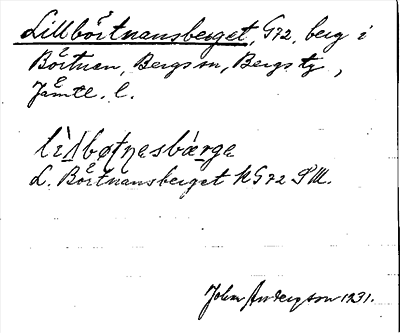 Lillbörtnansberget, G72, berg i
Börtnen, Bergs sn, Bergs tg,
Jämtl. l.
lìlbøtn̥esbærge
L. Börtnansberget N G72 SW.
John Anderson 1931.